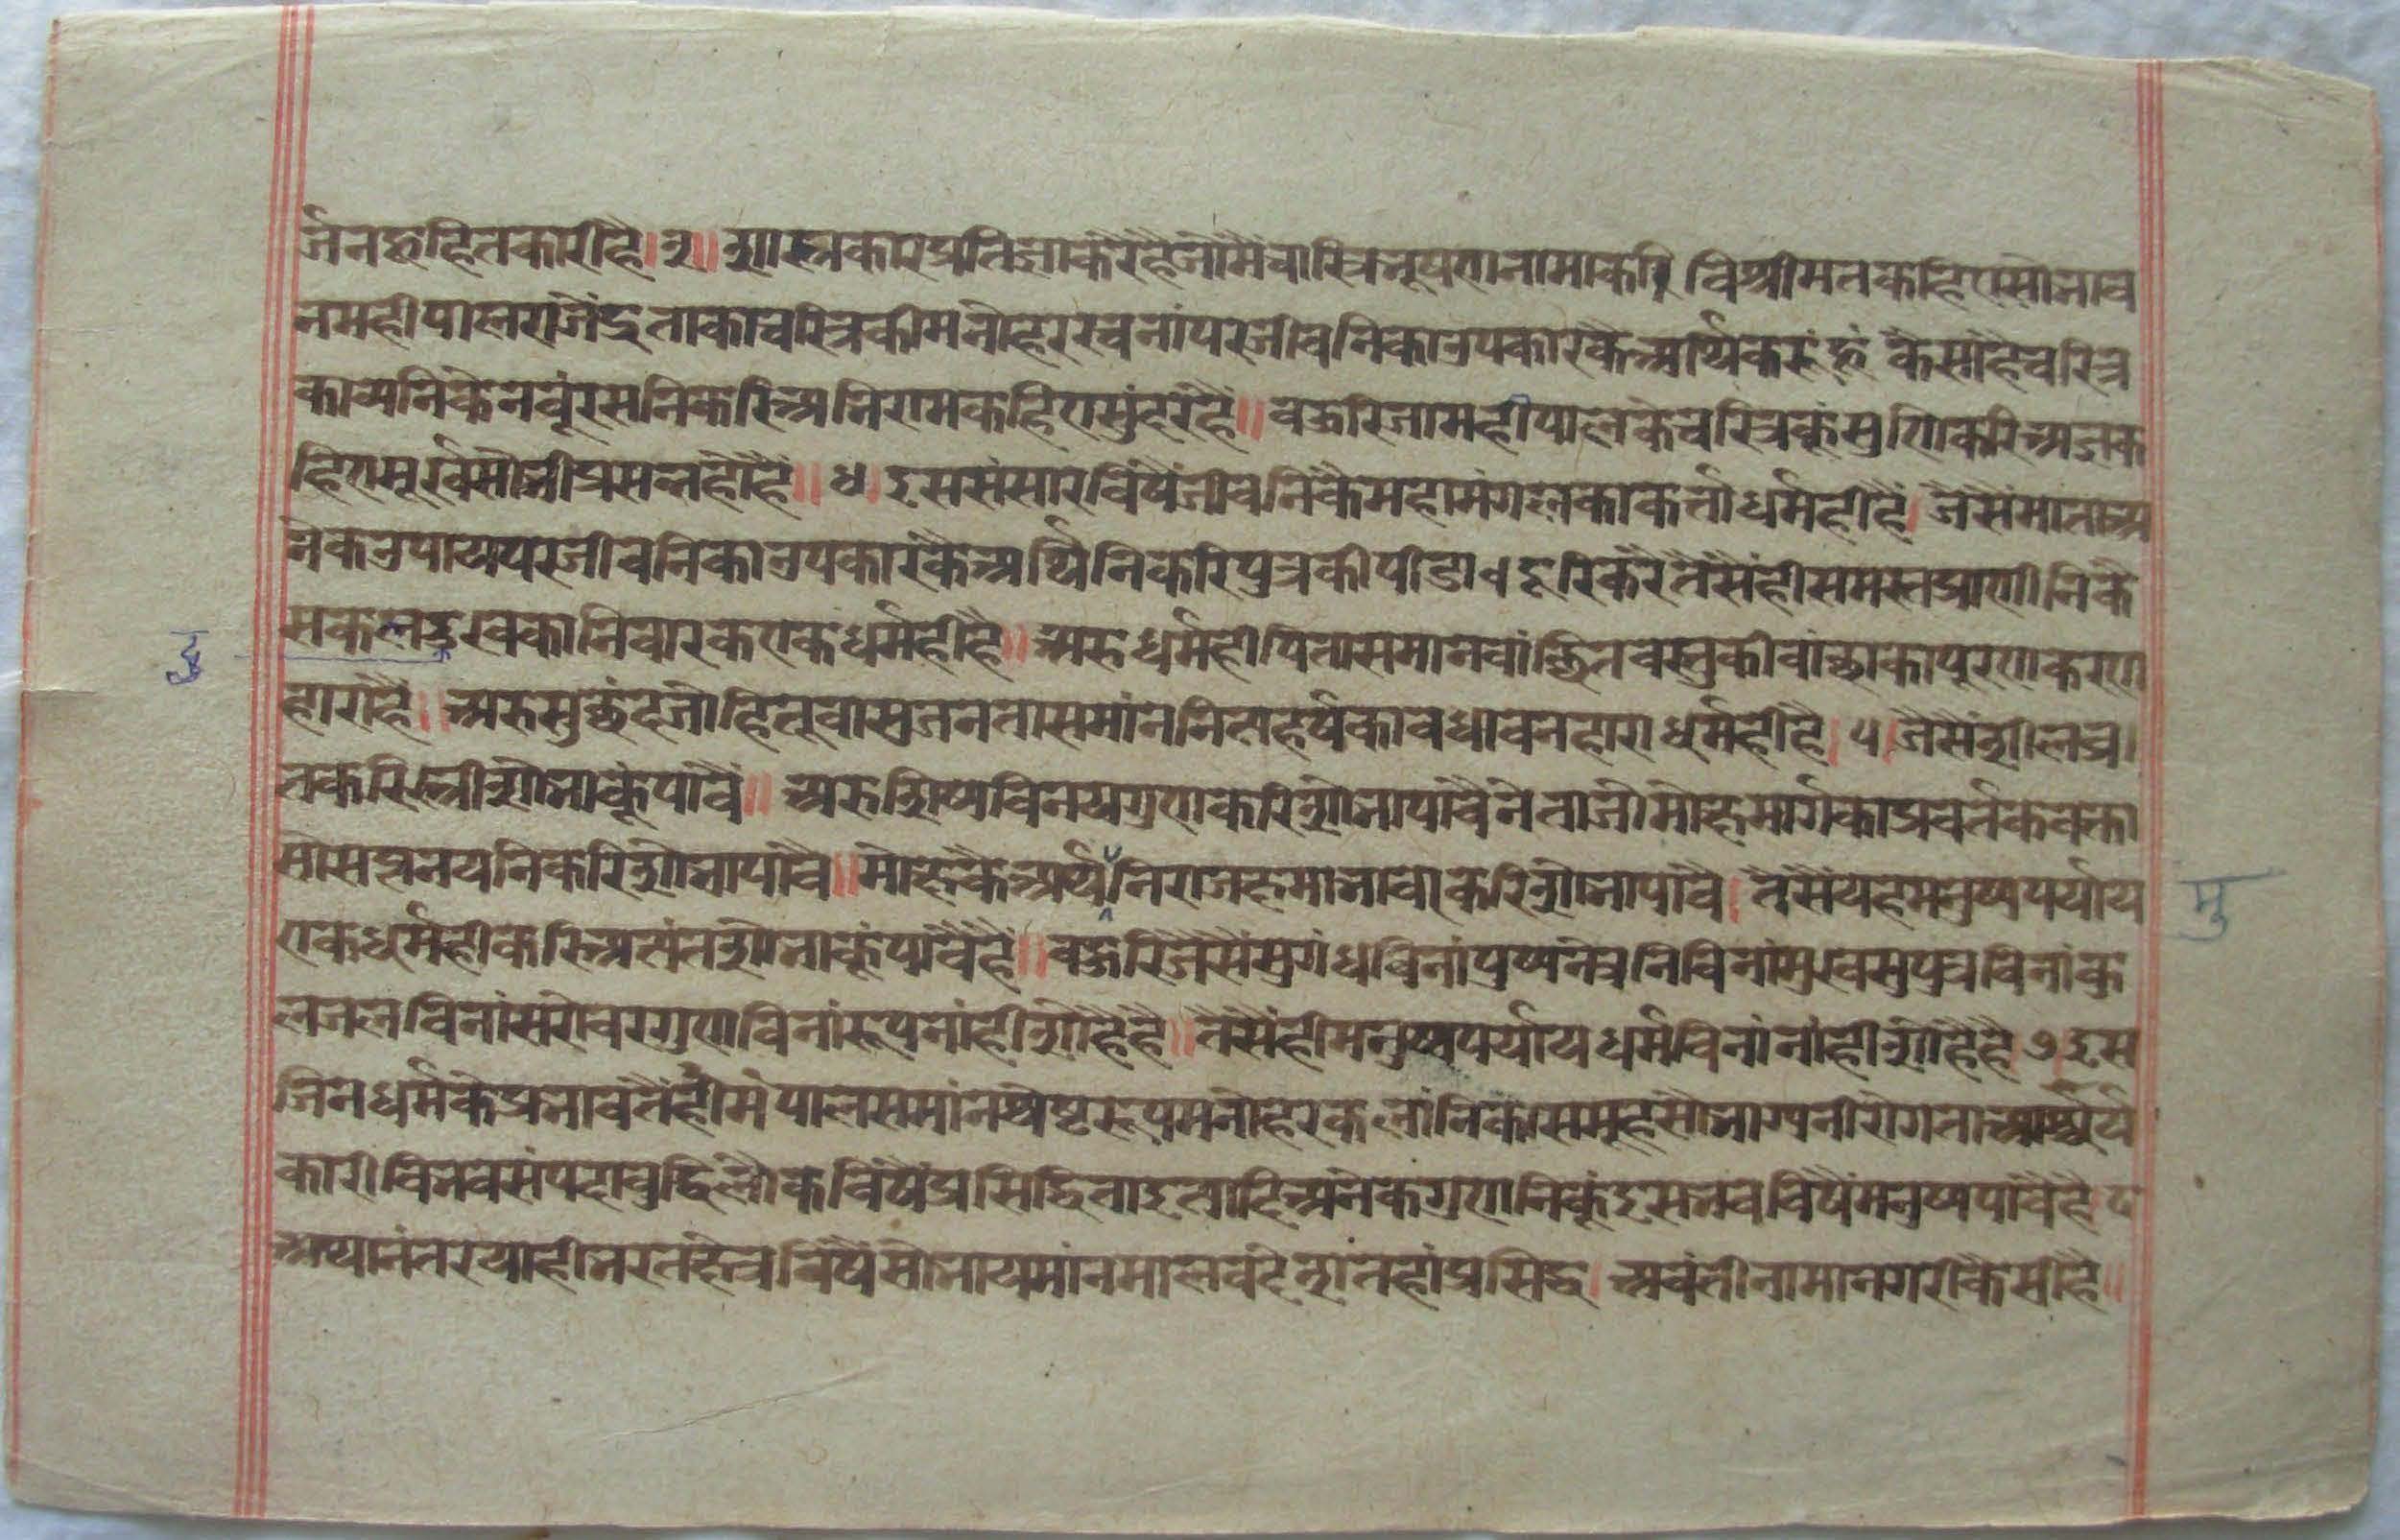 र्जनहूहितकारीहै॥३॥शास्त्रकारप्रतिज्ञाकरेहैजोमैचारित्रभूषणनामाकवि विश्रीमतकहिएसोभाव
नमहीपालराजेंद्रताकाचरित्रकीमनोहररचनांपरजीवनिकाउपकारकैअर्थिकरूंहूं कैसाहैचरित्र
काव्यनिकेनवूंरसनिकरिअभिरामकहिएसुंदरहै॥बहुरिजामहीपालकेचरित्रकूंसुणिकरिअज्ञक
हिएमूर्खसोभीप्रसन्नहोहै॥४॥इससंसारविषैंजीवनिकैमहामंगलकाकर्ताधर्महीहै।जैसैंमाताअ
नेकउपायपरजीवनिकाउपकारकैअर्थिनिकरिपुत्रकीपीडा दूरिकरैतैसैंहीसमस्तप्राणीनिके
सकलदुखकानिवारकएकधर्महीहै॥अरुधर्महीपितासमानवांछितवस्तुकीवांछाकापूरणकरण
हाराहै॥अरुसुहृदजोहितूवासुजनतासमांननित्यहर्षकावधावनहाराधर्महीहै।५।जैसैंशीलव्र
तकरिस्त्रीशोभाकूंपावै॥अरुशिष्यविनयगुणकरिशोभापावैनेताजोमोक्षमार्गकाप्रवर्तकवक्ता
सोसत्यनयनिकरिशोभापावै॥मोक्षकैअर्थिमुनिराजक्षमाभावकरिशोभापावै।तैसैंयहमनुष्यपर्याय
एकधर्महीकरिअत्यंतशोभाकूंपावैहै॥बहुरिजैसैंसुगंधविनांपुष्पनेत्रनिविनांमुखसुपुत्रविनांकु
लजलविनांसरोवरगुणविनांरूपनांहीशोहैहै॥तैसैंहीमनुष्यपर्यायधर्मविनांनांहीशोहैहै७इस
जिनधर्मकेप्रभावतैंहीमंपालसमांनश्रेष्टरूपमनोहरकलांनिकासमूहसौभाग्यनीरोगताआश्चर्य
कारीविभवसंपदाबुद्धिलोकविषैंप्रसिद्धिताइत्यादिअनेकगुणनिकूंइसभवविषैंमनुष्यपावैहै८
अथानंतरयाहीभरतक्षेत्रविषैंसोभायमांनमालवदेशतहांप्रसिद्ध।अवंतीनामानगरीकैसीहै॥
दु
मु